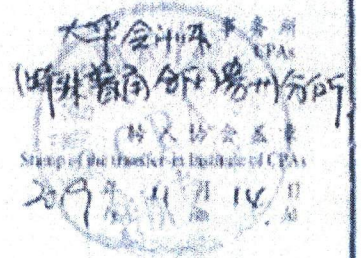 大华会计师事务所
CPAs
(特殊普通合伙) 分所
转入协会盖章
Stamp of the transfer-in Institute of CPAs
2019 年 11 月 14 日